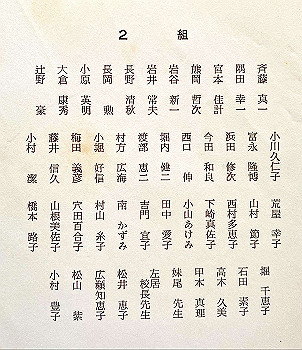 2 組
斉藤 真一
隅田 幸一
宮本 佳計
熊岡 哲次
岩谷 新一
岩井 常夫
長野 清秋
長岡 勲
小原 英明
大倉 康秀
辻野 豪
小川久仁子
富永 隆博
浜田 修次
今田 和良
西口 伸
堀内 健二
渡部 恵二
村方 広海
小堀 好信
梅田 義彦
藤井 信久
小村 潔
荒屋 幸子
山村 節子
西村多恵子
下崎真佐子
小山あけみ
田中 愛子
吉門 宣子
南 かずみ
村山 糸子
穴田百合子
山根美佐子
橋本 路子
堀 千恵子
石田 素子
高木 久美
甲本 真理
妹尾 先生
左居 校長先生
松井 恵子
広額知恵子
松山 紫
小村 豊子